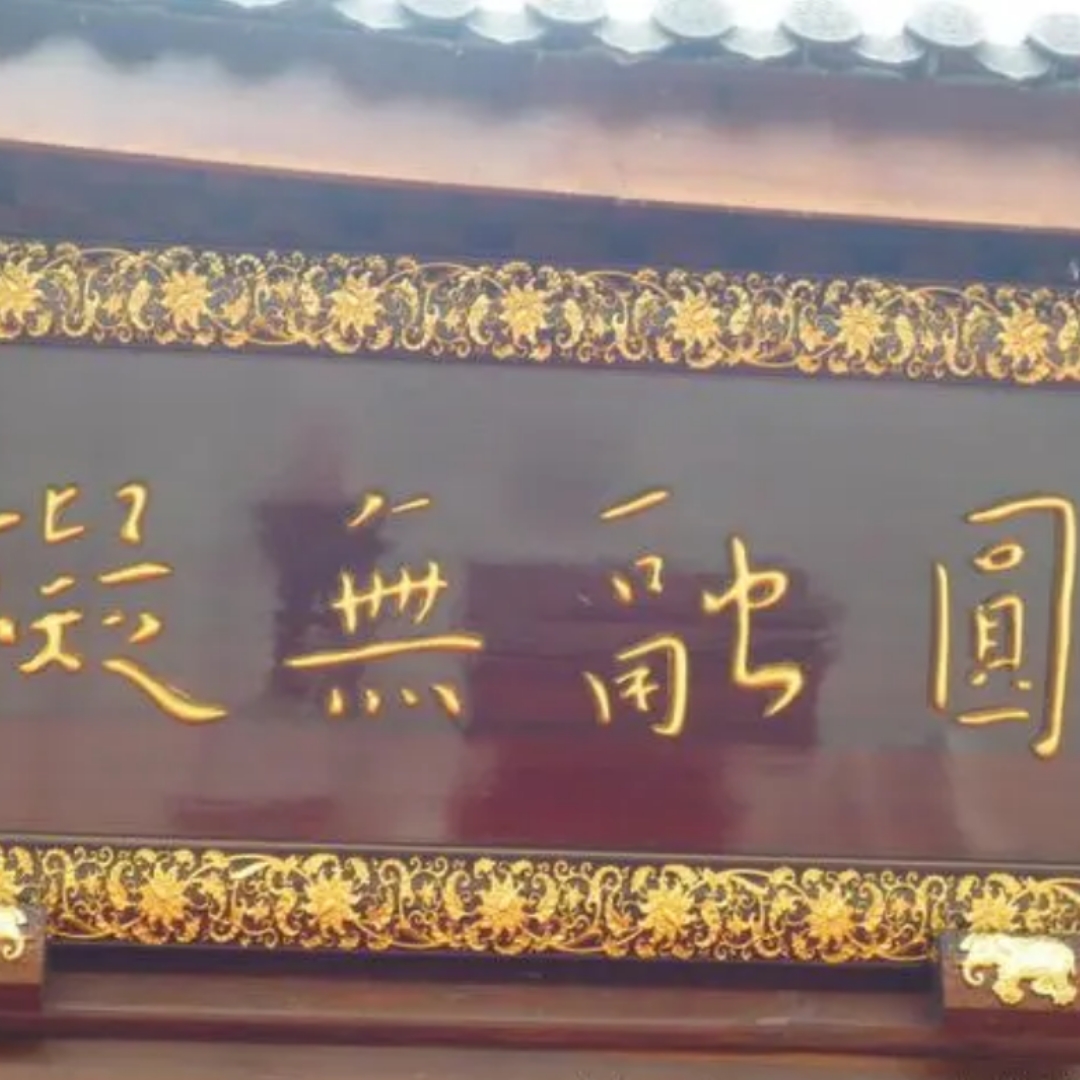 圓融無礙